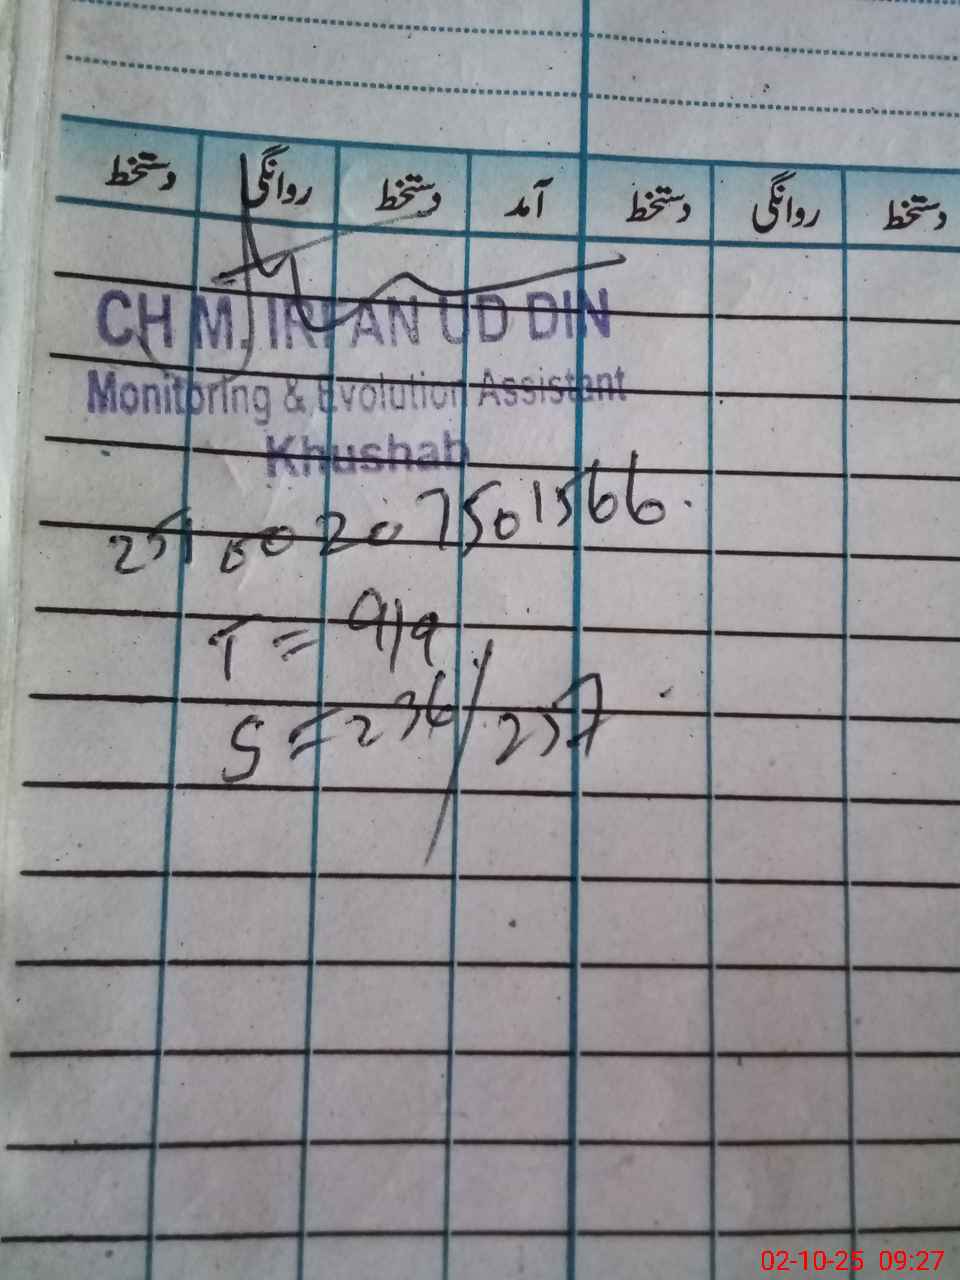 دستخط روانگی دستخط آمد دستخط روانگی دستخط
CH M. IRFAN UD DIN
Monitoring & Evolution Assistant
Khushab
T = 9/9
S = 236/257
02-10-25 09:27